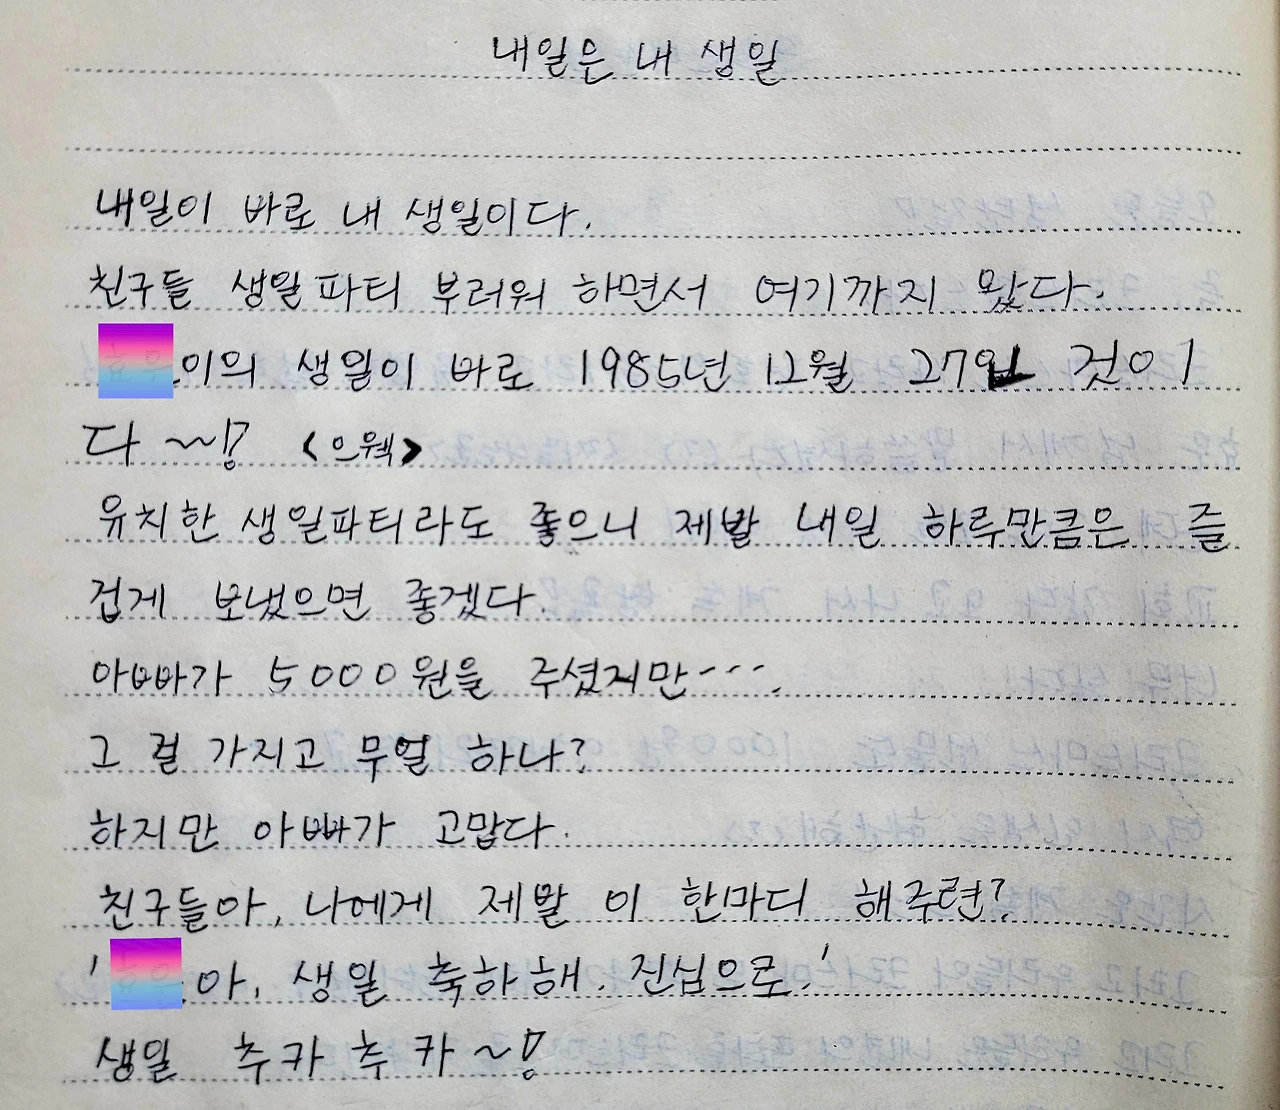 내일은 내 생일
내일이 바로 내 생일이다.
친구들 생일파티 부러워 하면서 여기까지 왔다.
이의 생일이 바로 1985년 12월 27일 것이
다 ~~!? <으웩>
유치한 생일파티라도 좋으니 제발 내일 하루만큼은 즐
겁게 보냈으면 좋겠다.
아빠가 5000원을 주셨지만---.
그 걸 가지고 무얼 하나?
하지만 아빠가 고맙다.
친구들아, 나에게 제발 이 한마디 해주련?
'아, 생일 축하해. 진심으로.'
생일 추카추카~!